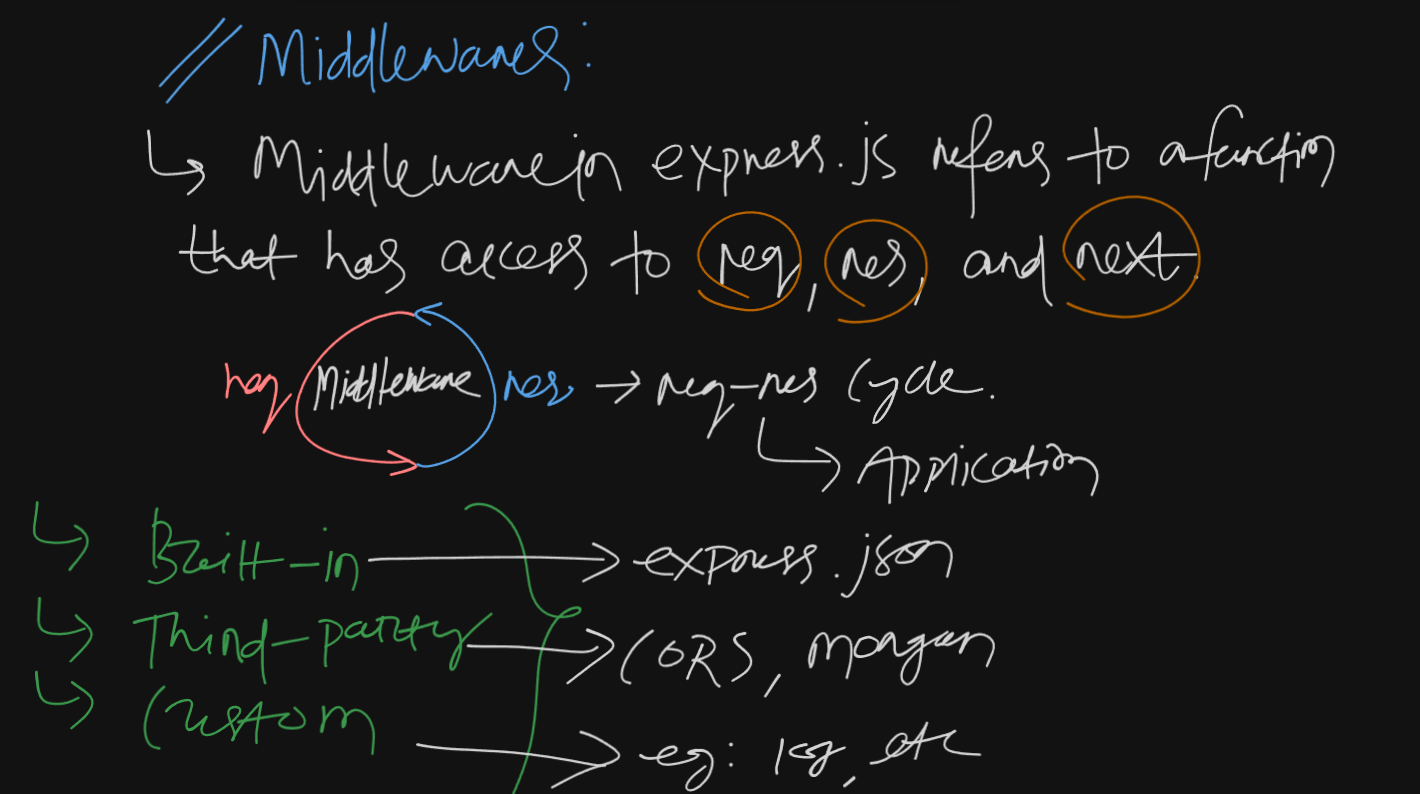 // Middlewares:
↳ Middleware in express.js refers to a function
that has access to req, res, and next.
req Middleware res → req-res Cycle.
↳ Application
↳ Built-in → express.json
↳ Third-party → CORS, morgan
↳ Custom → eg: , etc